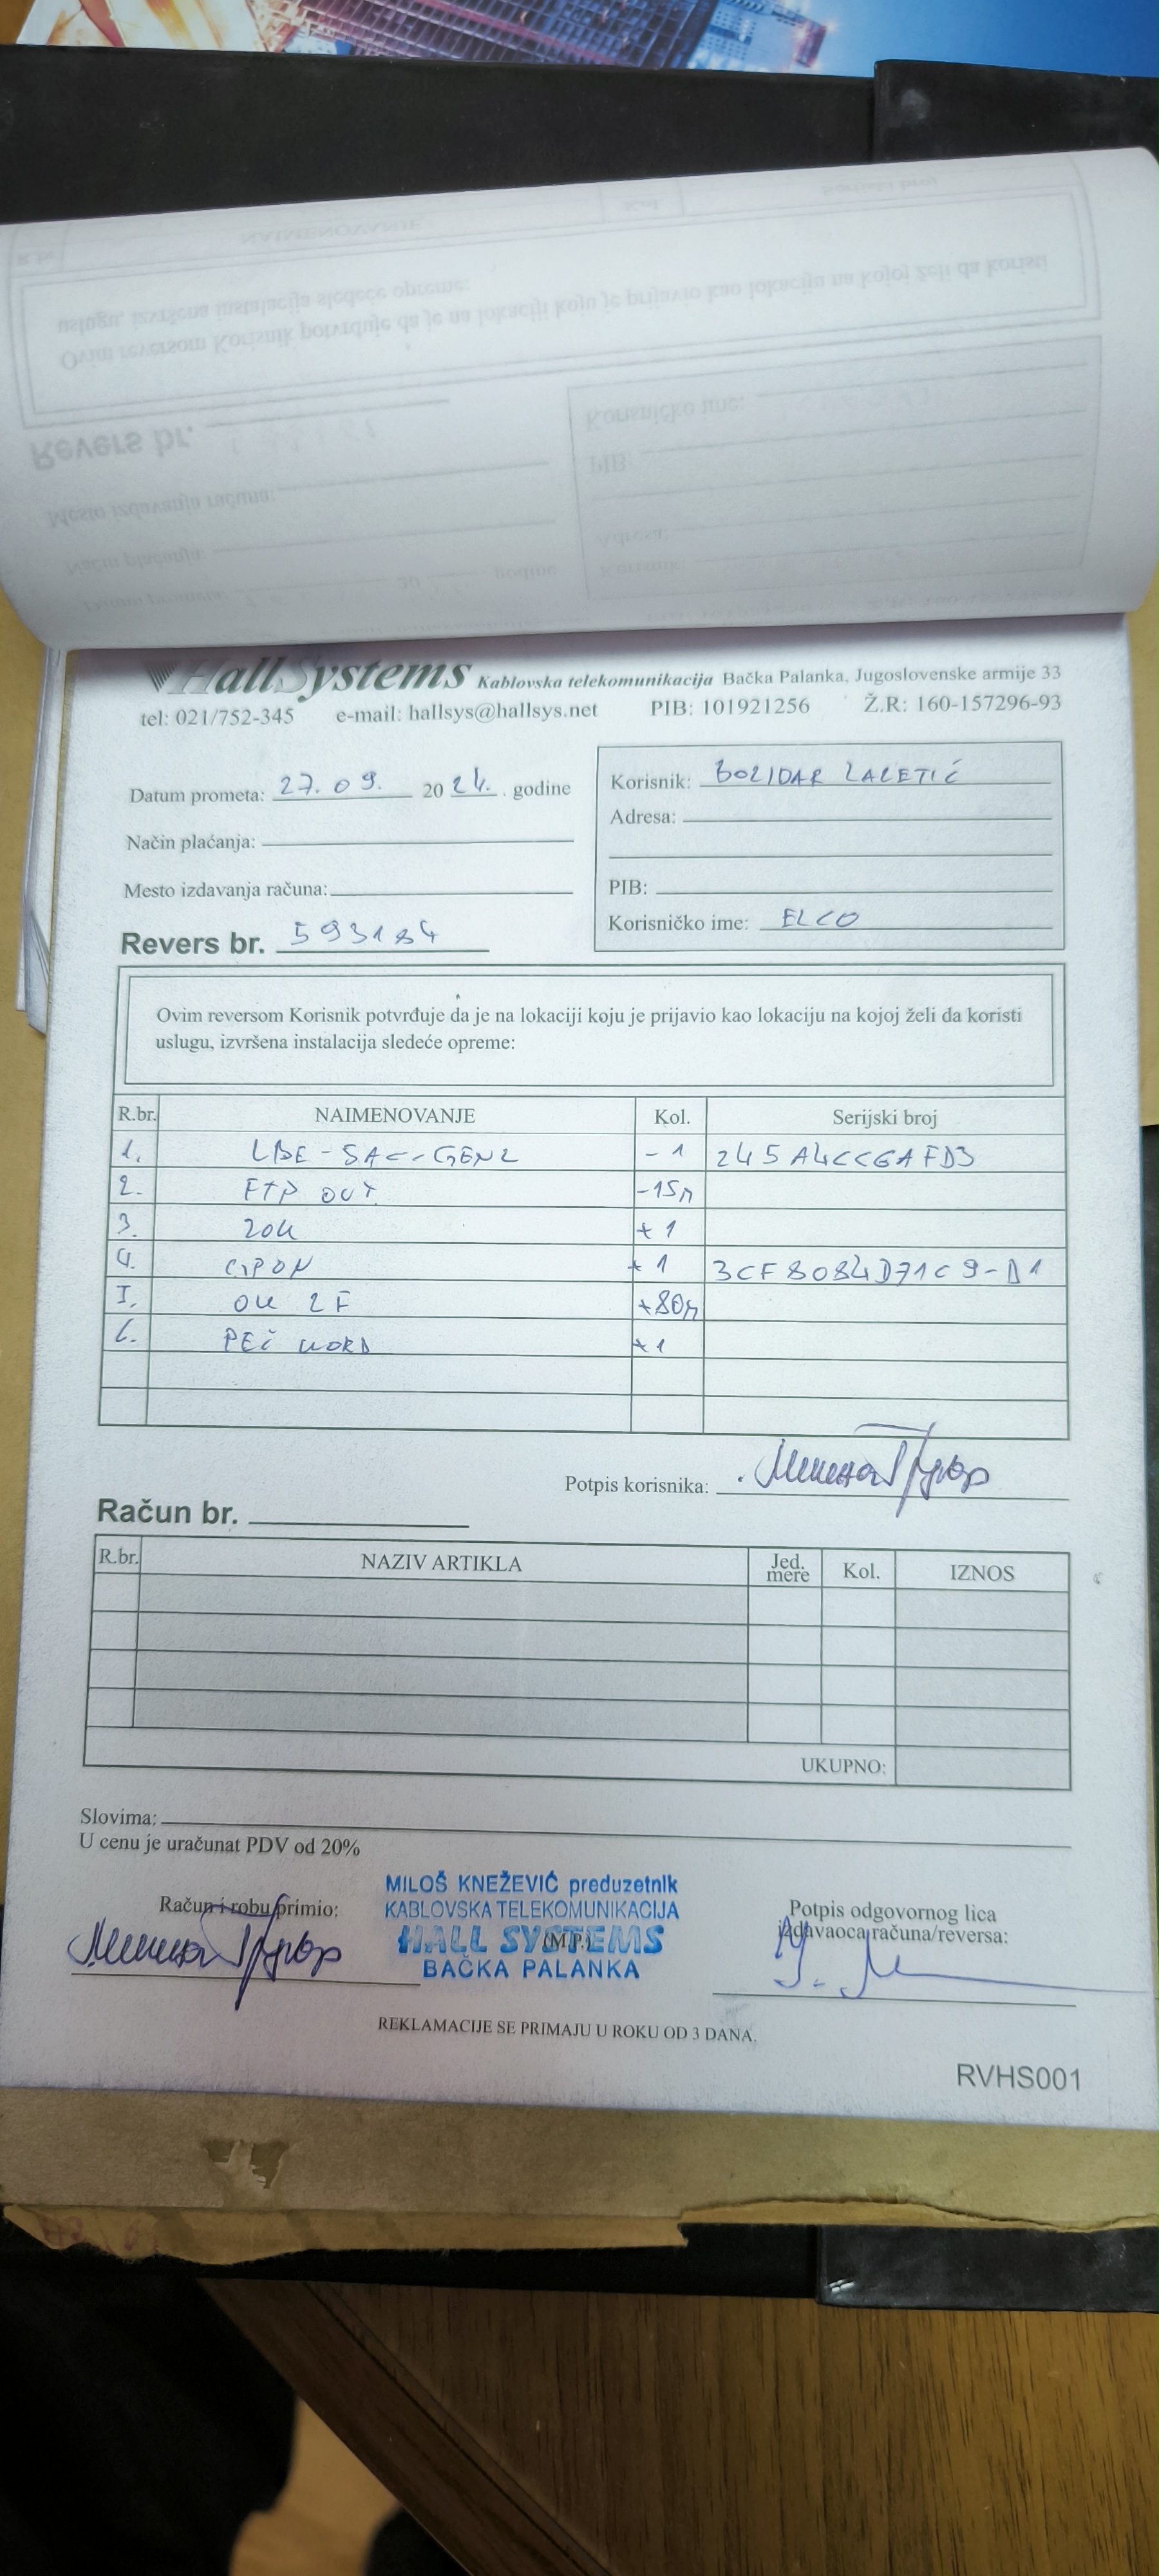 HallSystems Kablovska telekomunikacija Bačka Palanka, Jugoslovenske armije 33
tel: 021/752-345 e-mail: hallsys@hallsys.net PIB: 101921256 Ž.R: 160-157296-93
Datum prometa: 27.09. 2024. godine
Način plaćanja:
Mesto izdavanja računa:
Revers br. 593184
Korisnik: BOZIDAR LALETIĆ
Adresa:
PIB:
Korisničko ime: ELCO
Ovim reversom Korisnik potvrđuje da je na lokaciji koju je prijavio kao lokaciju na kojoj želi da koristi
uslugu, izvršena instalacija sledeće opreme:
R.br. NAIMENOVANJE Kol. Serijski broj
1. LBE-5AC-GEN2 -1 245A4CC6AFD3
2. FTP OUT -15m
3. ZOK +1
4. GPON +1 3CF8084D71C9-D1
5. OK 2F +80m
6. PEČ KORD +1
Potpis korisnika:
Račun br.
R.br. NAZIV ARTIKLA Jed. mere Kol. IZNOS
UKUPNO:
Slovima:
U cenu je uračunat PDV od 20%
Račun i robu primio:
MILOŠ KNEŽEVIĆ preduzetnik
KABLOVSKA TELEKOMUNIKACIJA
HALL SYSTEMS
(M.P.)
BAČKA PALANKA
Potpis odgovornog lica
izdavaoca računa/reversa:
REKLAMACIJE SE PRIMAJU U ROKU OD 3 DANA.
RVHS001